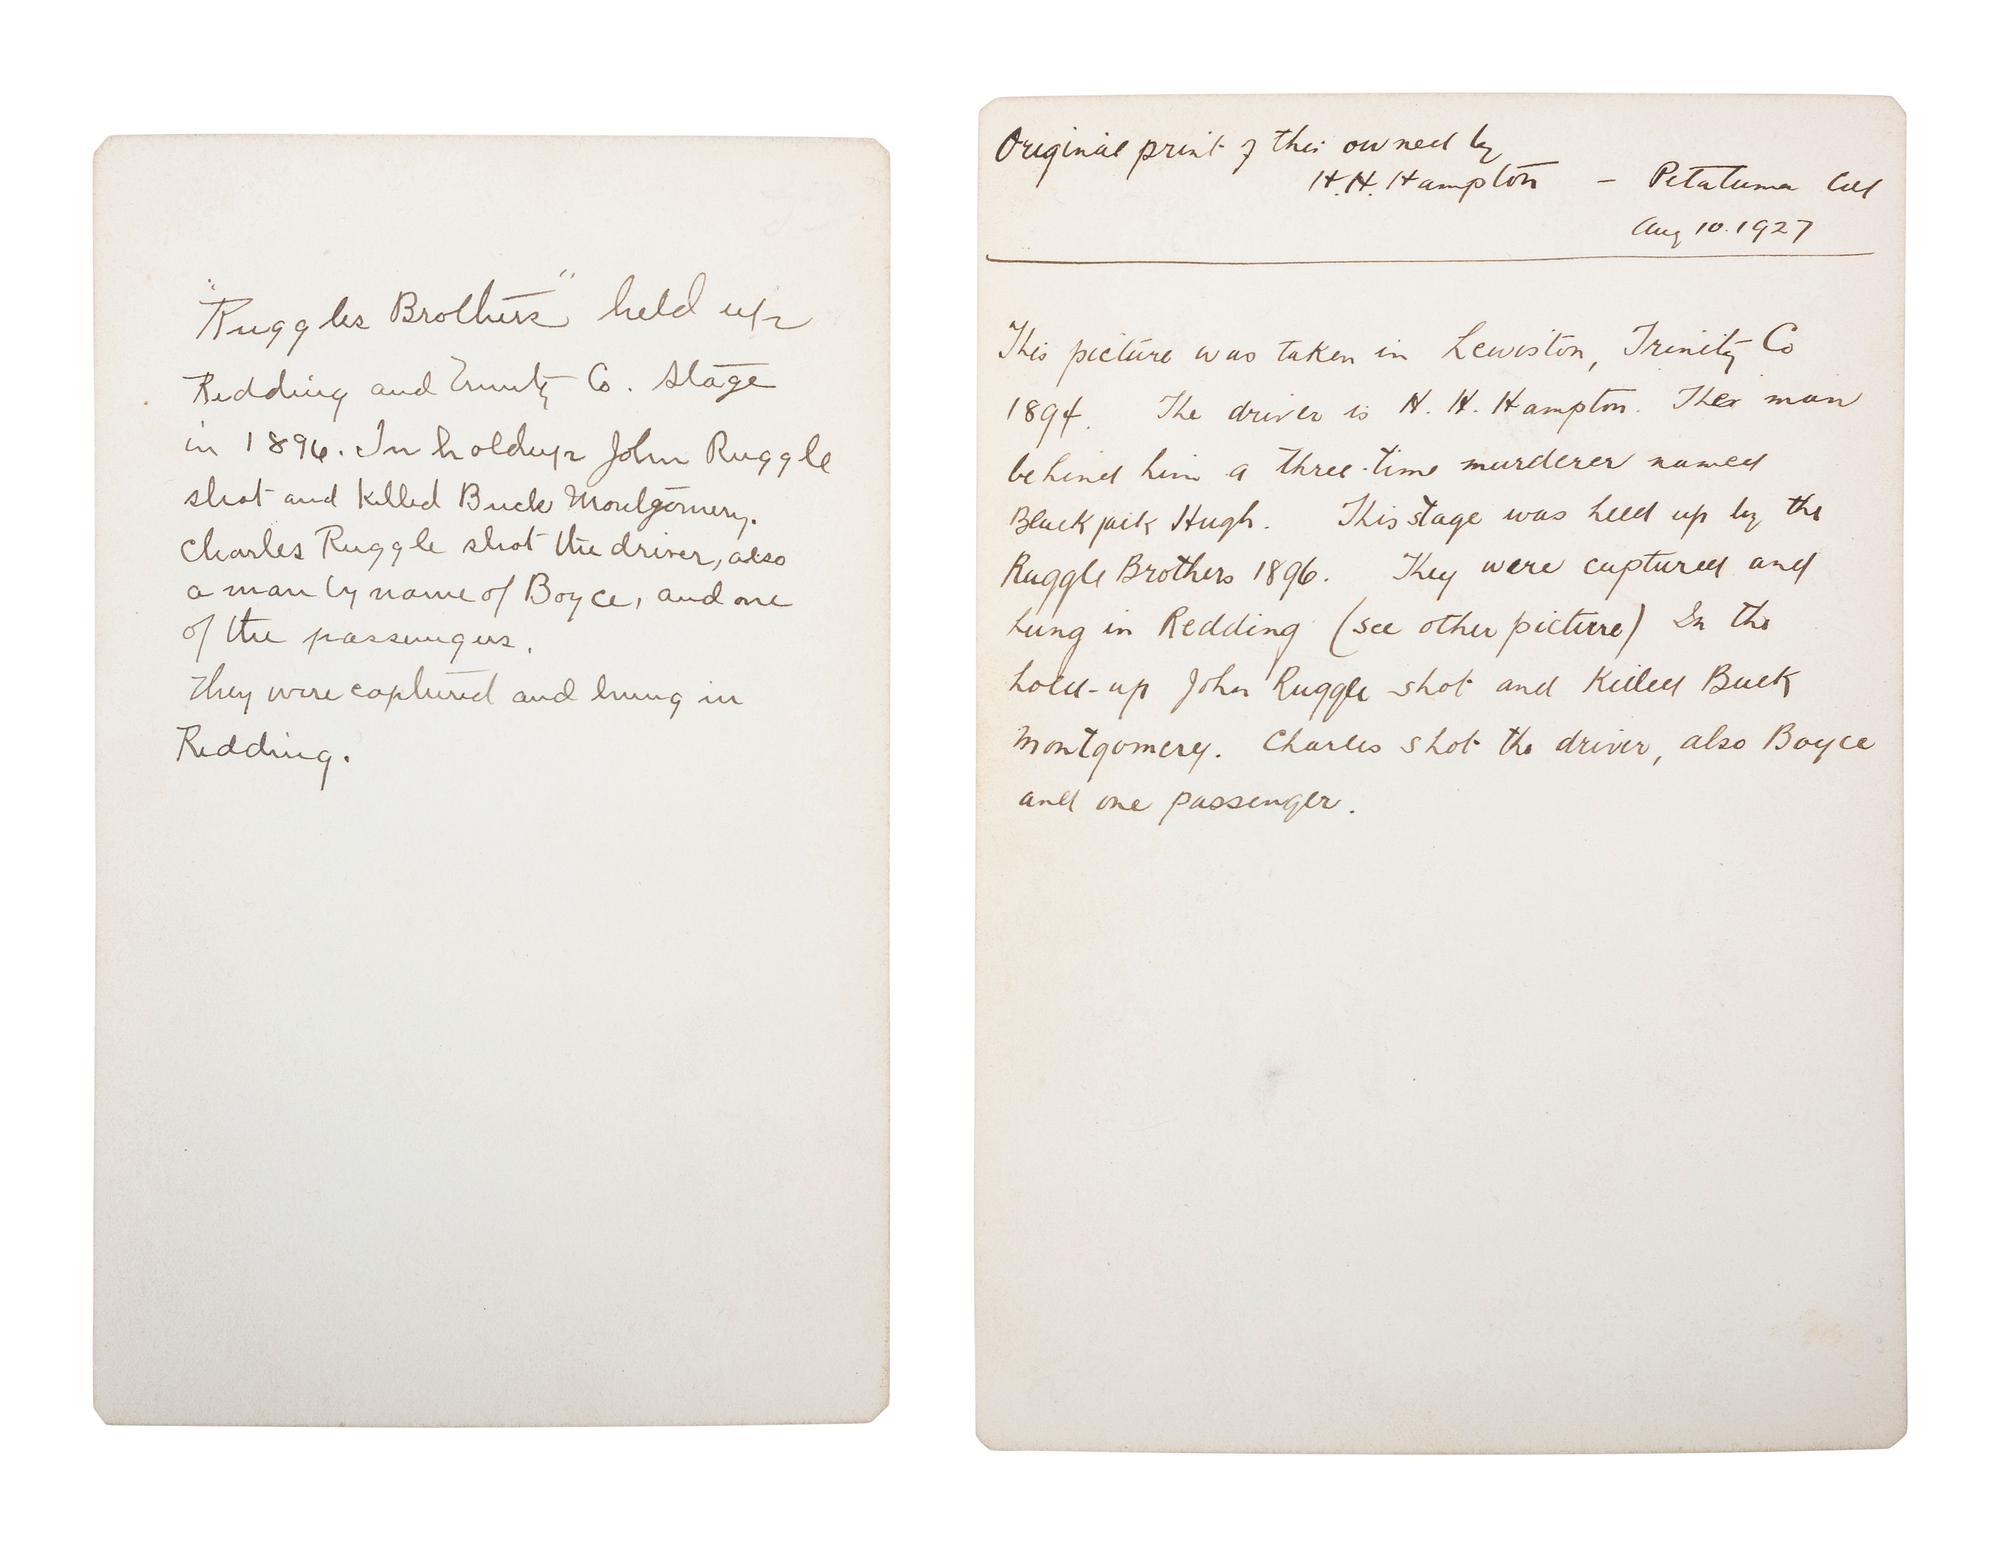 "Ruggles Brothers" held up
Redding and Trinity Co. Stage
in 1896. In holdup John Ruggle
shot and killed Buck Montgomery.
Charles Ruggle shot the driver, also
a man by name of Boyce, and one
of the passengers.
They were captured and hung in
Redding.
Original print of this owned by
H.H. Hampton - Petaluma Cal
Aug 10. 1927
This picture was taken in Lewiston, Trinity Co
1894. The driver is H. H. Hampton. The man
behind him a three-time murderer named
Blackjack Hugh. This stage was held up by the
Ruggle Brothers 1896. They were captured and
hung in Redding (see other picture) In the
hold-up John Ruggle shot and Killed Buck
Montgomery. Charles shot the driver, also Boyce
and one passenger.